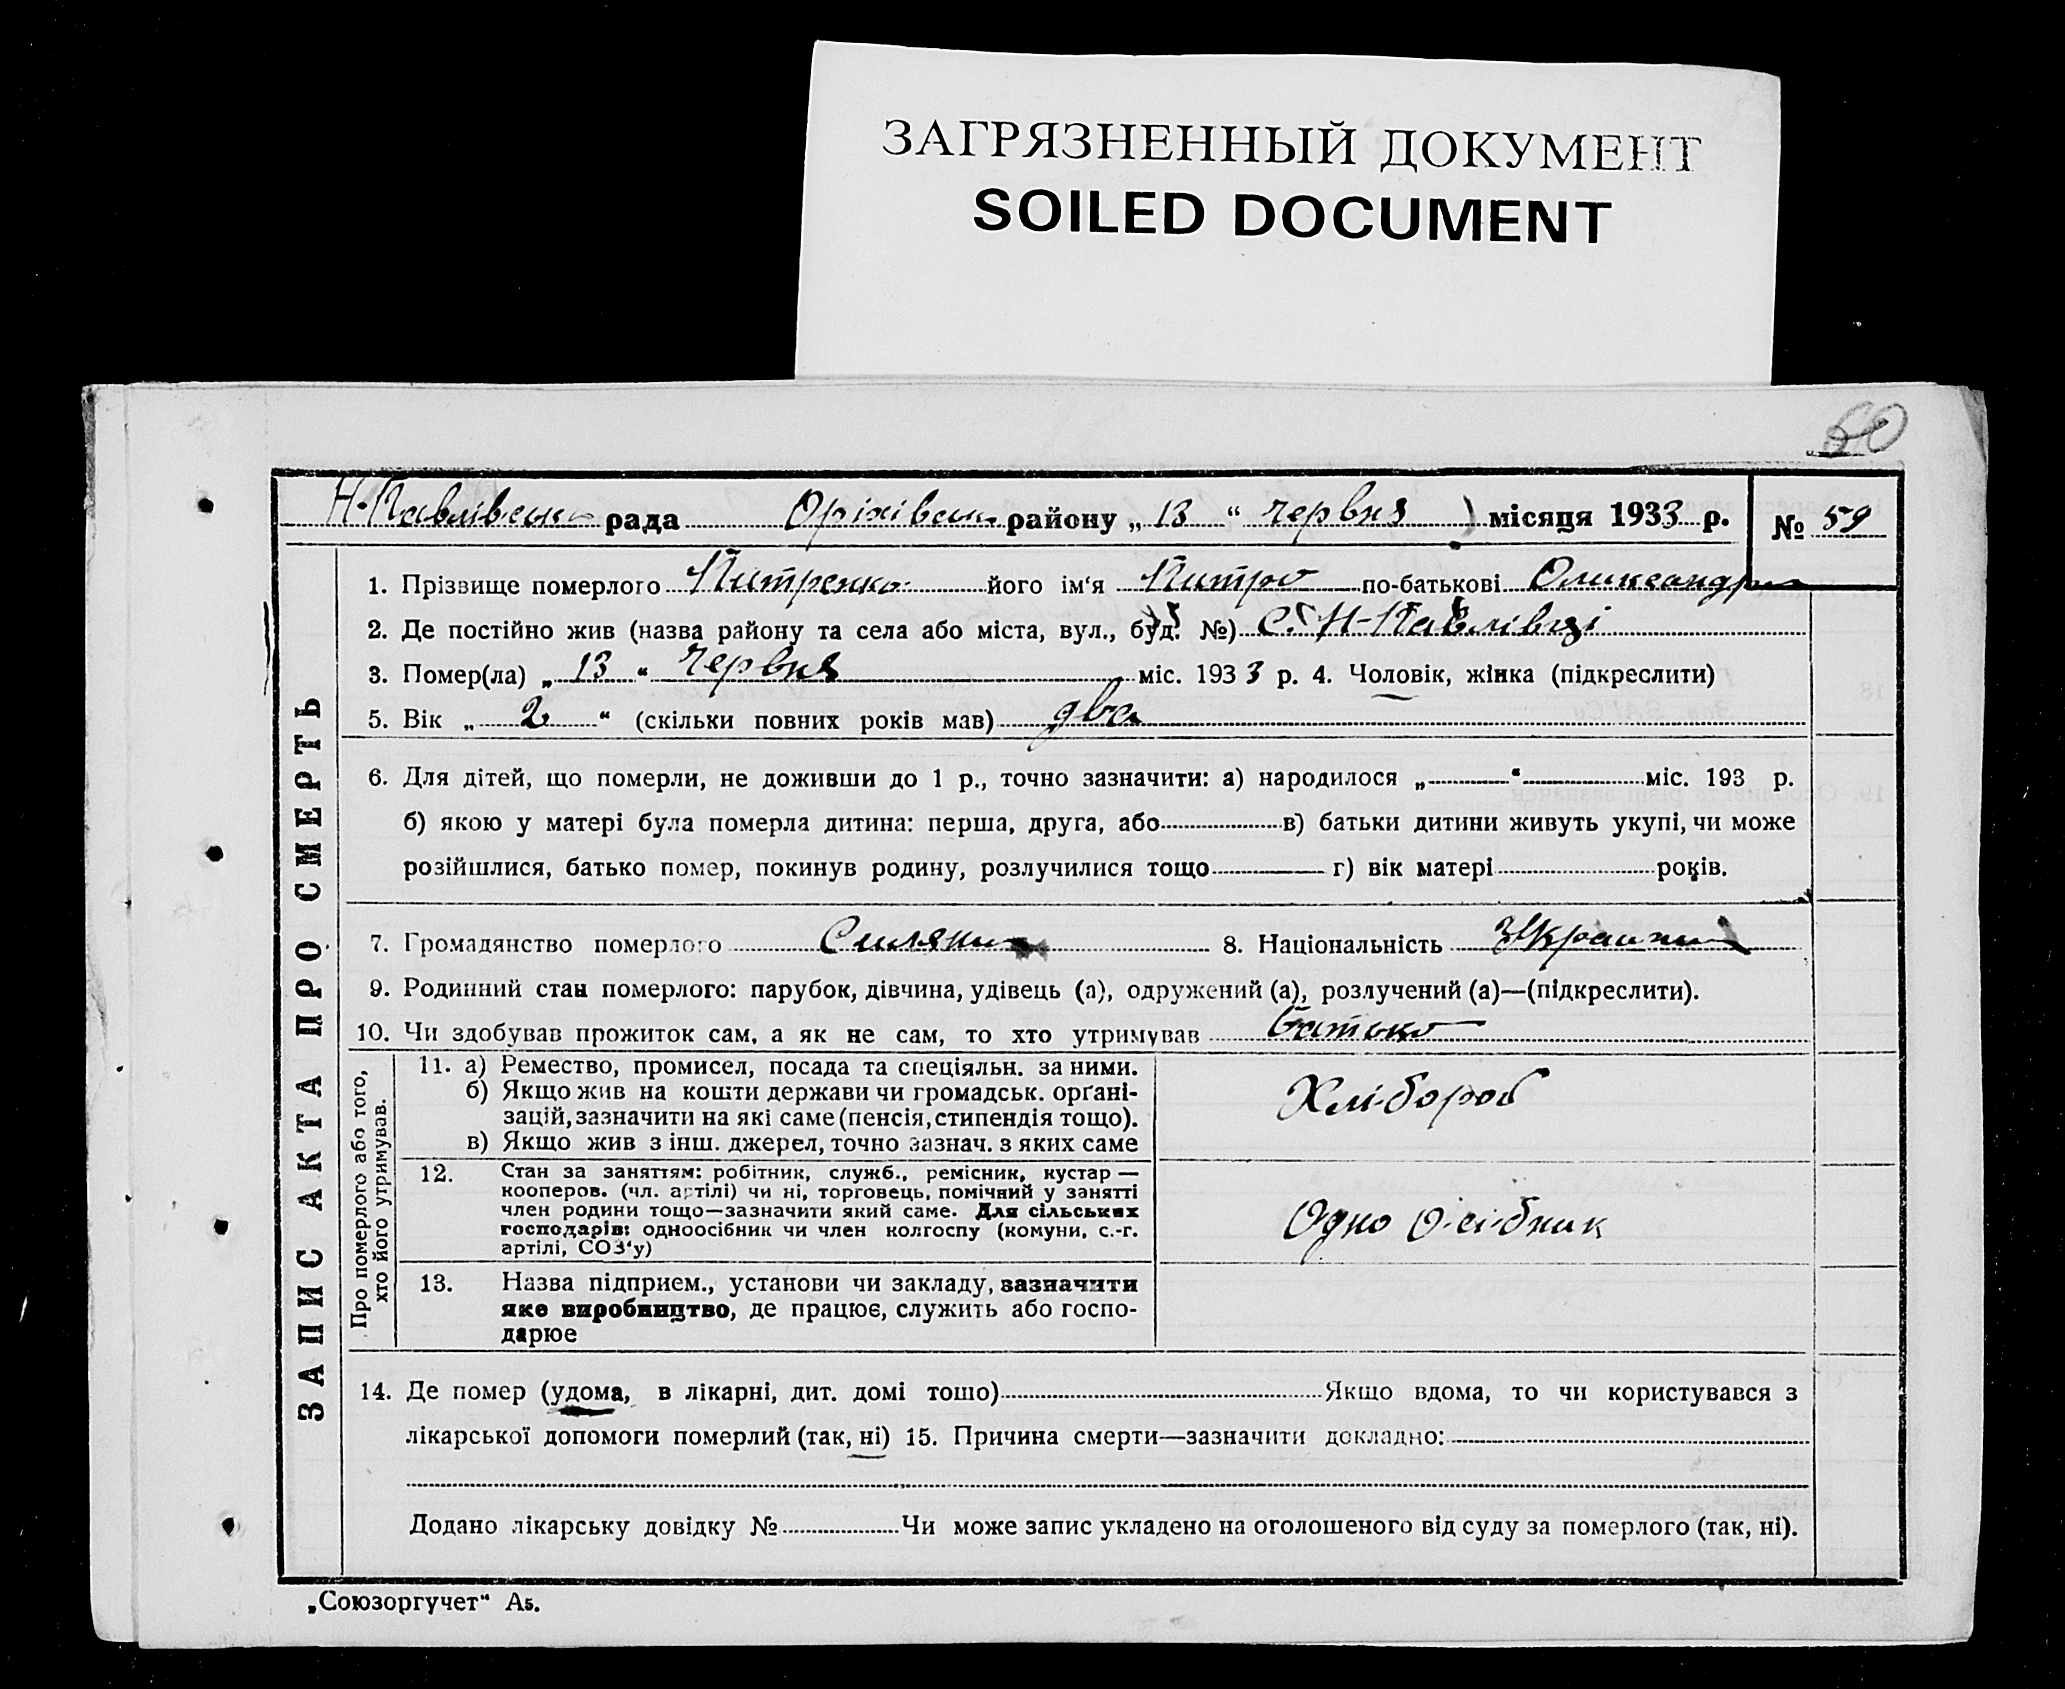 ЗАГРЯЗНЕННЫЙ ДОКУМЕНТ
SOILED DOCUMENT
60
Н-Павлівськ рада Оріхівськ району „ 13 “ червня місяця 1933 р. № 59
1. Прізвище померлого Питренко його ім‘я Питро по-батькові Оликсандр
2. Де постійно жив (назва району та села або міста, вул., буд. №) С. Н-Павлівці
3. Помер(ла) „ 13 “ червня міс. 1933 р. 4. Чоловік, жінка (підкреслити)
5. Вік „ 2 “ (скільки повних років мав) два
6. Для дітей, що померли, не доживши до 1 р., точно зазначити: а) народилося „ “ міс. 193 р.
б) якою у матері була померла дитина: перша, друга, або в) батьки дитини живуть укупі, чи може
розійшлися, батько помер, покинув родину, розлучилися тощо г) вік матері років.
7. Громадянство померлого Силянин 8. Національність Украині
9. Родинний стан померлого: парубок, дівчина, удівець (а), одружений (а), розлучений (а)—(підкреслити).
10. Чи здобував прожиток сам, а як не сам, то хто утримував батько
ЗАПИС АКТА ПРО СМЕРТЬ
Про померлого або того,
хто його утримував.
11. а) Ремество, промисел, посада та спеціяльн. за ними.
б) Якщо жив на кошти держави чи громадськ. орґані-
зацій, зазначити на які саме (пенсія, стипендія тощо).
в) Якщо жив з інш. джерел, точно зазнач. з яких саме
Хлібороб
12. Стан за заняттям: робітник, служб., ремісник, кустар—
кооперов. (чл. артілі) чи ні, торговець, помічний у занятті
член родини тощо—зазначити який саме. Для сільських
господарів: одноосібник чи член колгоспу (комуни, с.-г.
артілі, СОЗ‘у)
Одно осібник
13. Назва підприєм., установи чи закладу, зазначити
яке виробництво, де працює, служить або госпо-
дарює
14. Де помер (удома, в лікарні, дит. домі тощо) Якщо вдома, то чи користувався з
лікарської допомоги померлий (так, ні) 15. Причина смерти—зазначити докладно:
Додано лікарську довідку № Чи може запис укладено на оголошеного від суду за померлого (так, ні).
„Союзоргучет“ А5.